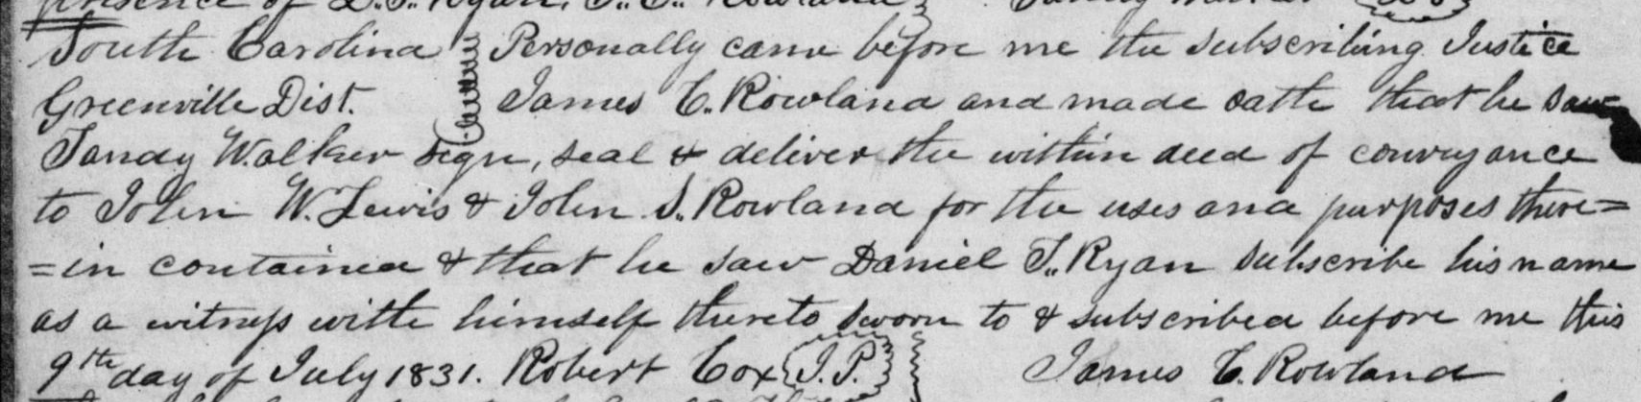 presence of D. T. Ryan, J. C. Rowland
South Carolina Personally came before me the subscribing Justice
Greenville Dist. James C. Rowland and made oath that he saw
Tandy Walker sign, seal & deliver the within deed of conveyance
to John W. Lewis & John S. Rowland for the uses and purposes there=
=in contained & that he saw Daniel T. Ryan subscribe his name
as a witness with himself thereto sworn to & subscribed before me this
9th day of July 1831. Robert Cox J.P. James C. Rowland